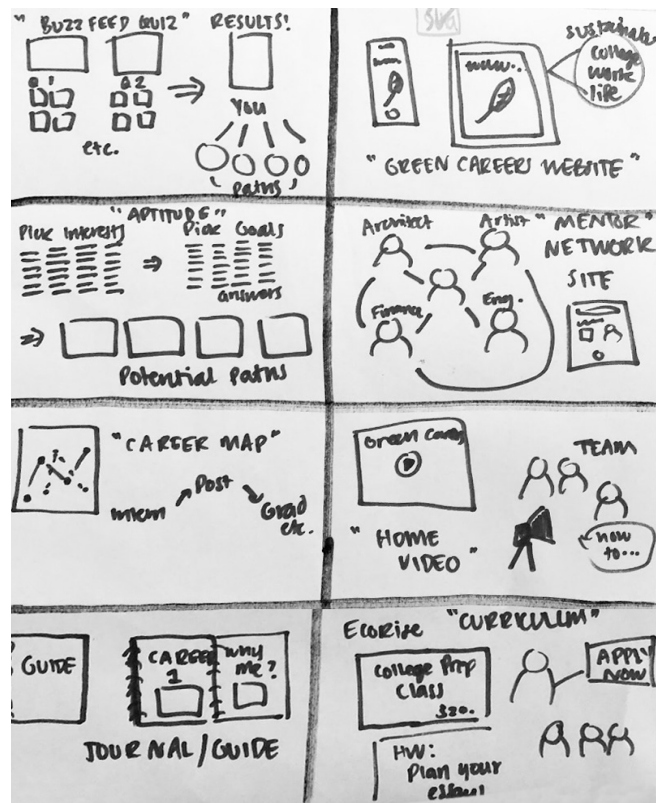 "BUZZ FEED QUIZ"
RESULTS!
Q 1
Q 2
etc.
You
Paths
SVG
www..
sustainable
college
work
life
"GREEN CAREERS WEBSITE"
"APTITUDE"
Pick Interests
Pick Goals
answers
Potential Paths
Architect
Artist
"MENTOR"
NETWORK
SITE
Finance
Eng.
"CAREER MAP"
Intern
Post
Grad
etc.
Green Careers
TEAM
"HOME
VIDEO"
how
to...
GUIDE
CAREER
1
Why
me?
JOURNAL/GUIDE
EcoRise
"CURRICULUM"
College Prep
Class
320.
APPLY
NOW
HW:
Plan your